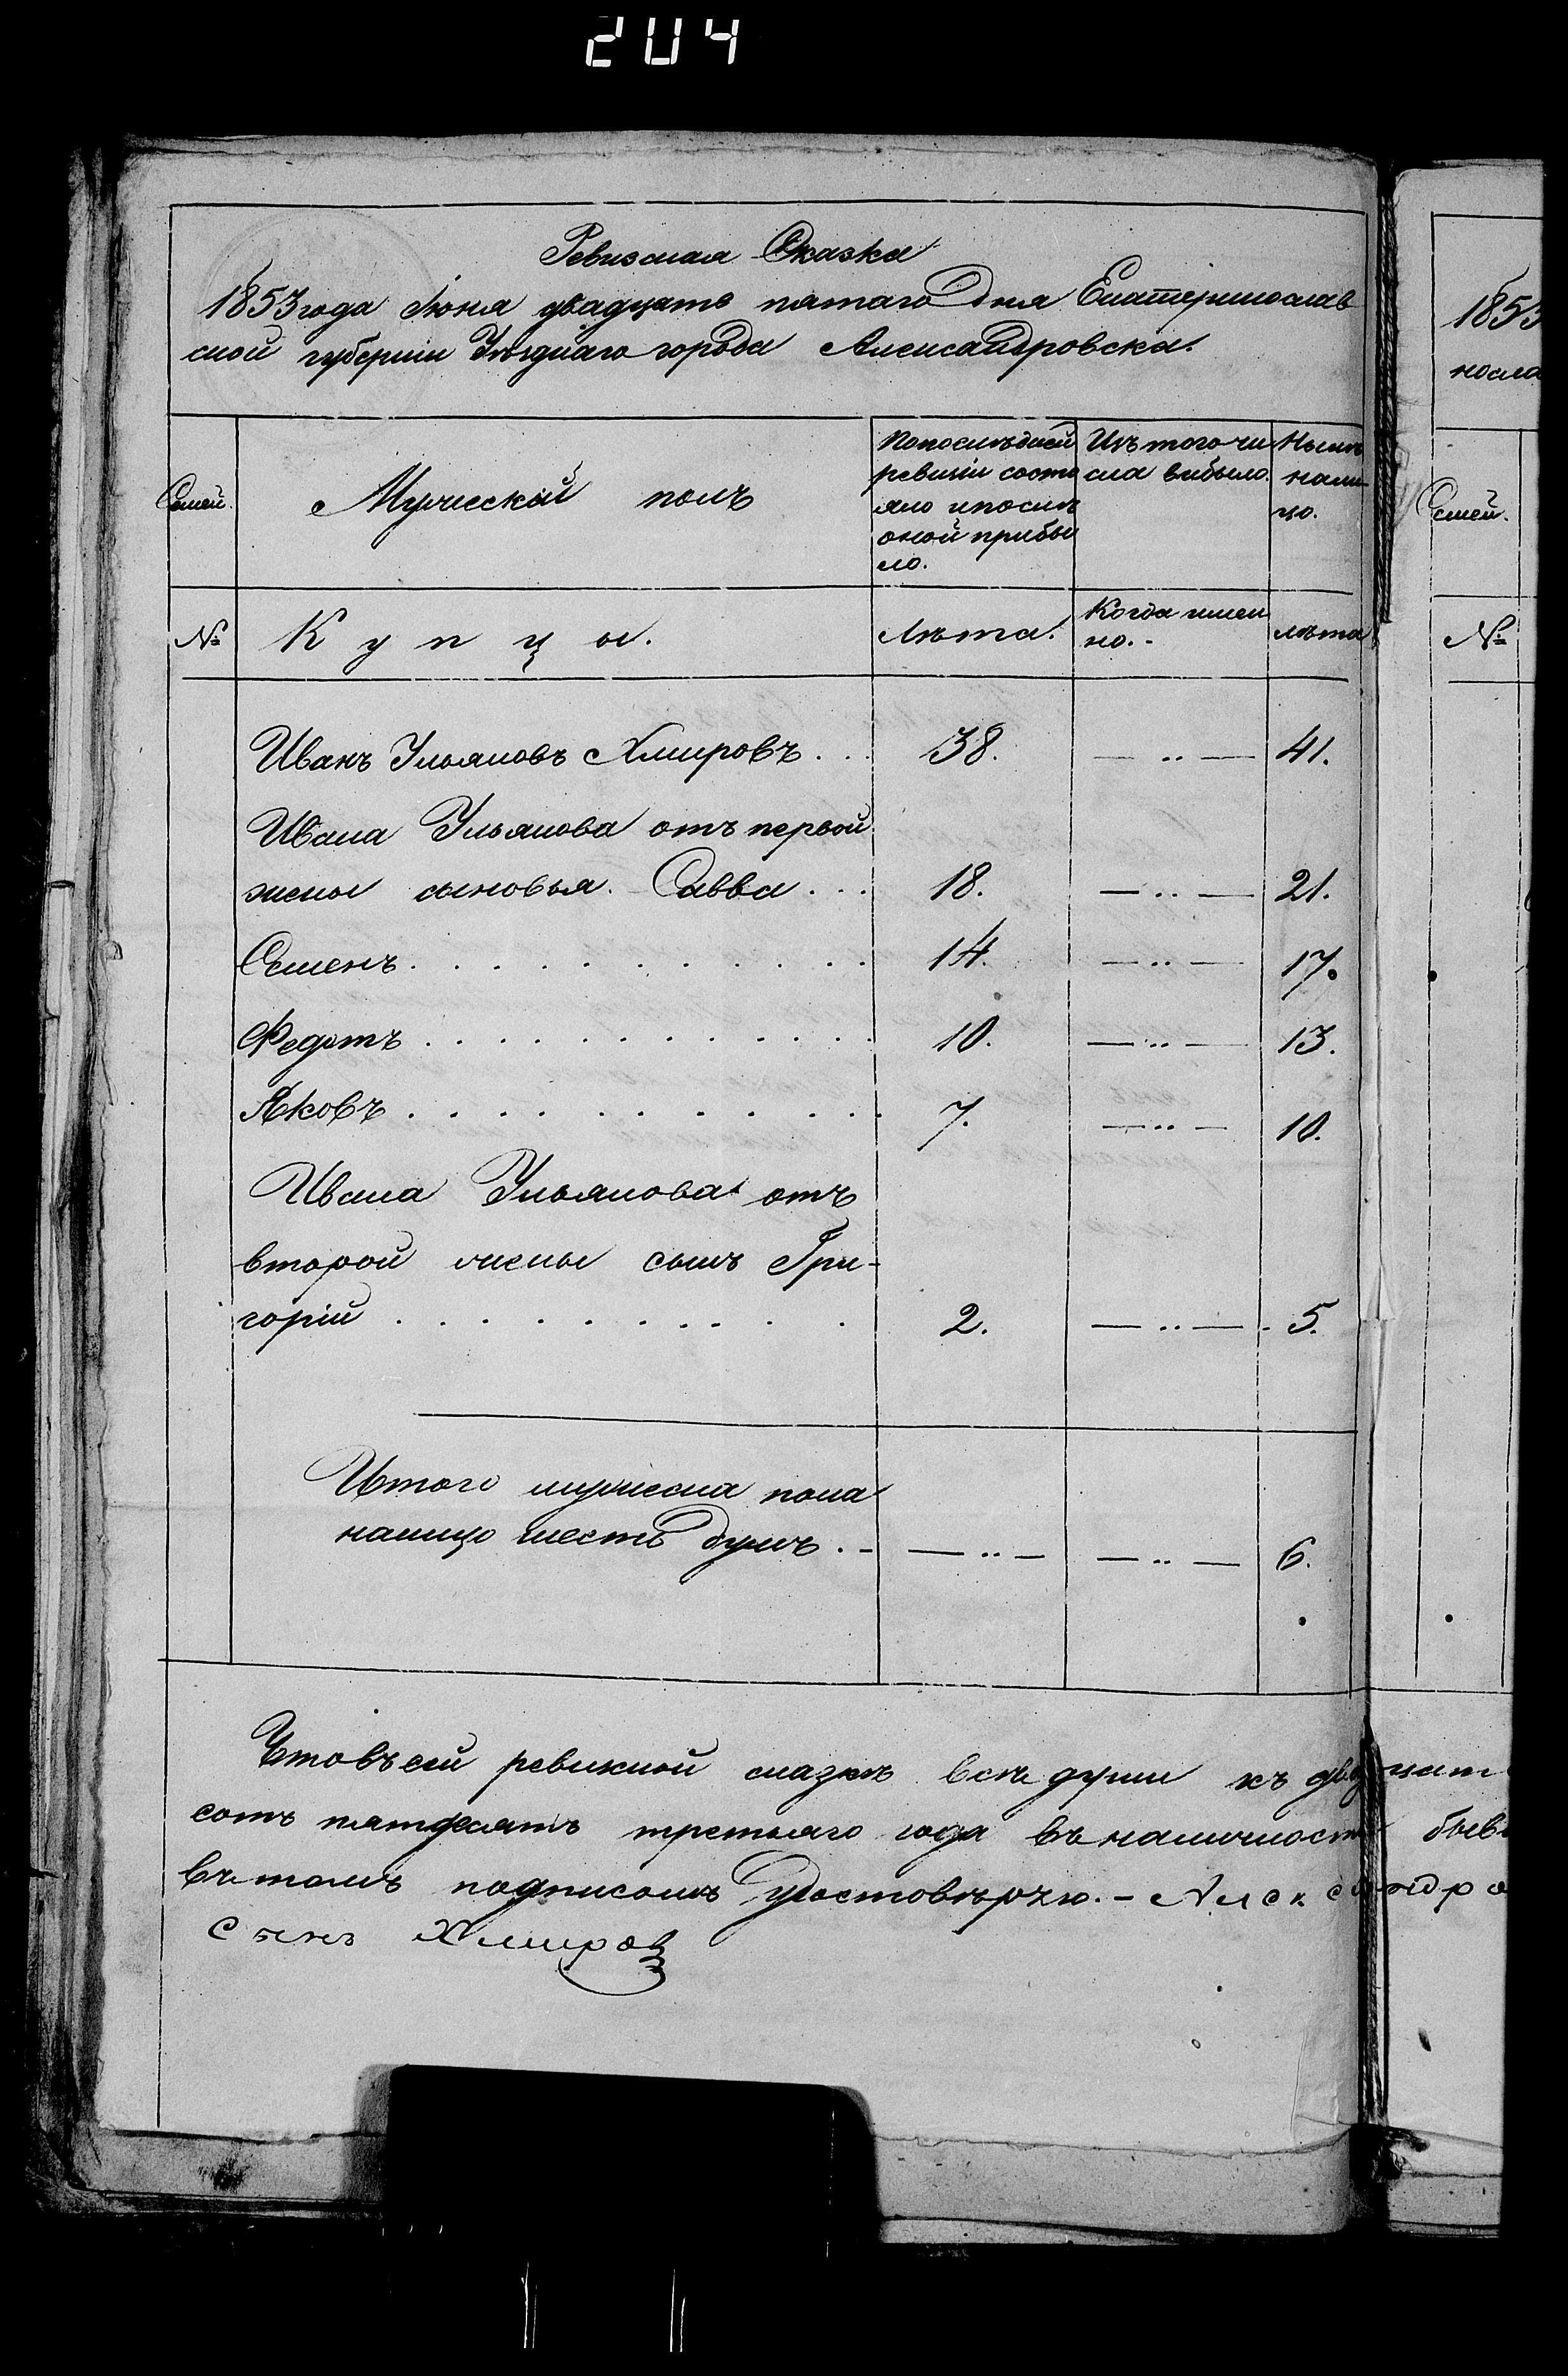 204
Ревизская Сказка
1853 года Июня двадцать пятаго дня Екатеринослав
ской губернии Уезднаго города Александровска.
Семей.
Мужеский полъ
По последней
ревизии состо
яло и после
оной прибы
ло.
Изъ того чи
сла выбыло.
Ныне
нали-
цо.
№
Купцы.
Лета.
Когда имен
но. -
лета
Иванъ Ульяновъ Хмировъ . . . 38. — „ — 41.
Ивана Ульянова отъ первой
жены сыновья. Савва . . . 18. — „ — 21.
Семенъ. . . . . . . . . . . . 14. — „ — 17.
Федотъ . . . . . . . . . . . . 10. — „ — 13.
Яковъ . . . . . . . . . . . . 7. — „ — 10.
Ивана Ульянова отъ
второй жены сынъ Гри-
горій . . . . . . . . . . 2. — „ — 5.
Итого мужеска пола
налицо шесть душъ . - — „ — — „ — 6.
Что въ сей ревизкой сказке все души къ двадцат
сотъ пятдесятъ третьяго года въ наличност быв
въ томъ подписомъ удостоверяю. - Александро
Сынъ Хмиров
1853
носла
Семей.
№